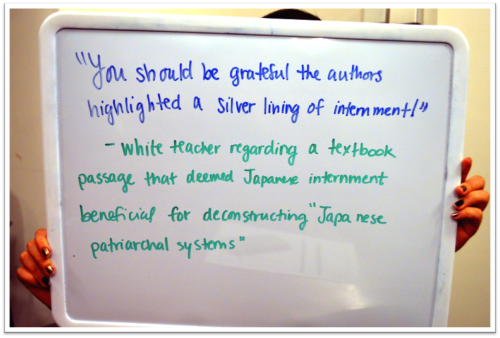 "You should be grateful the authors
highlighted a silver lining of internment!"
- White teacher regarding a textbook
passage that deemed Japanese internment
beneficial for deconstructing "Japanese
patriarchal systems"